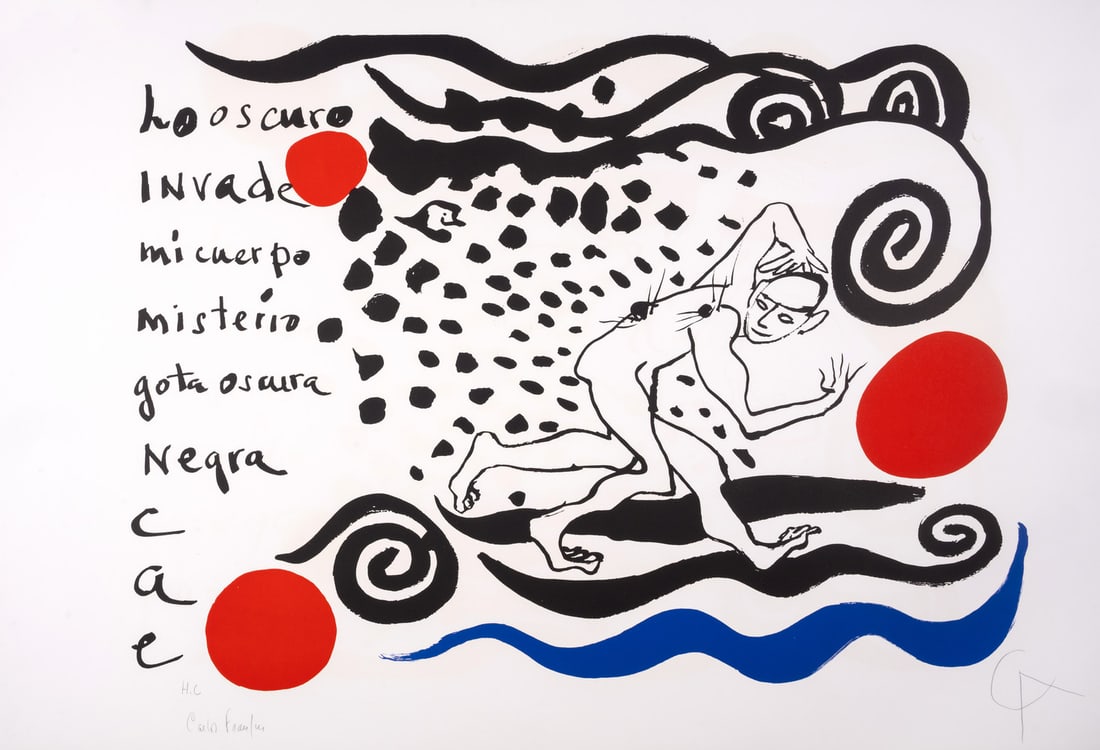 Lo oscuro
INvade
mi cuerpo
misterio
gota oscura
Negra
C
a
e
H.C
Carlos